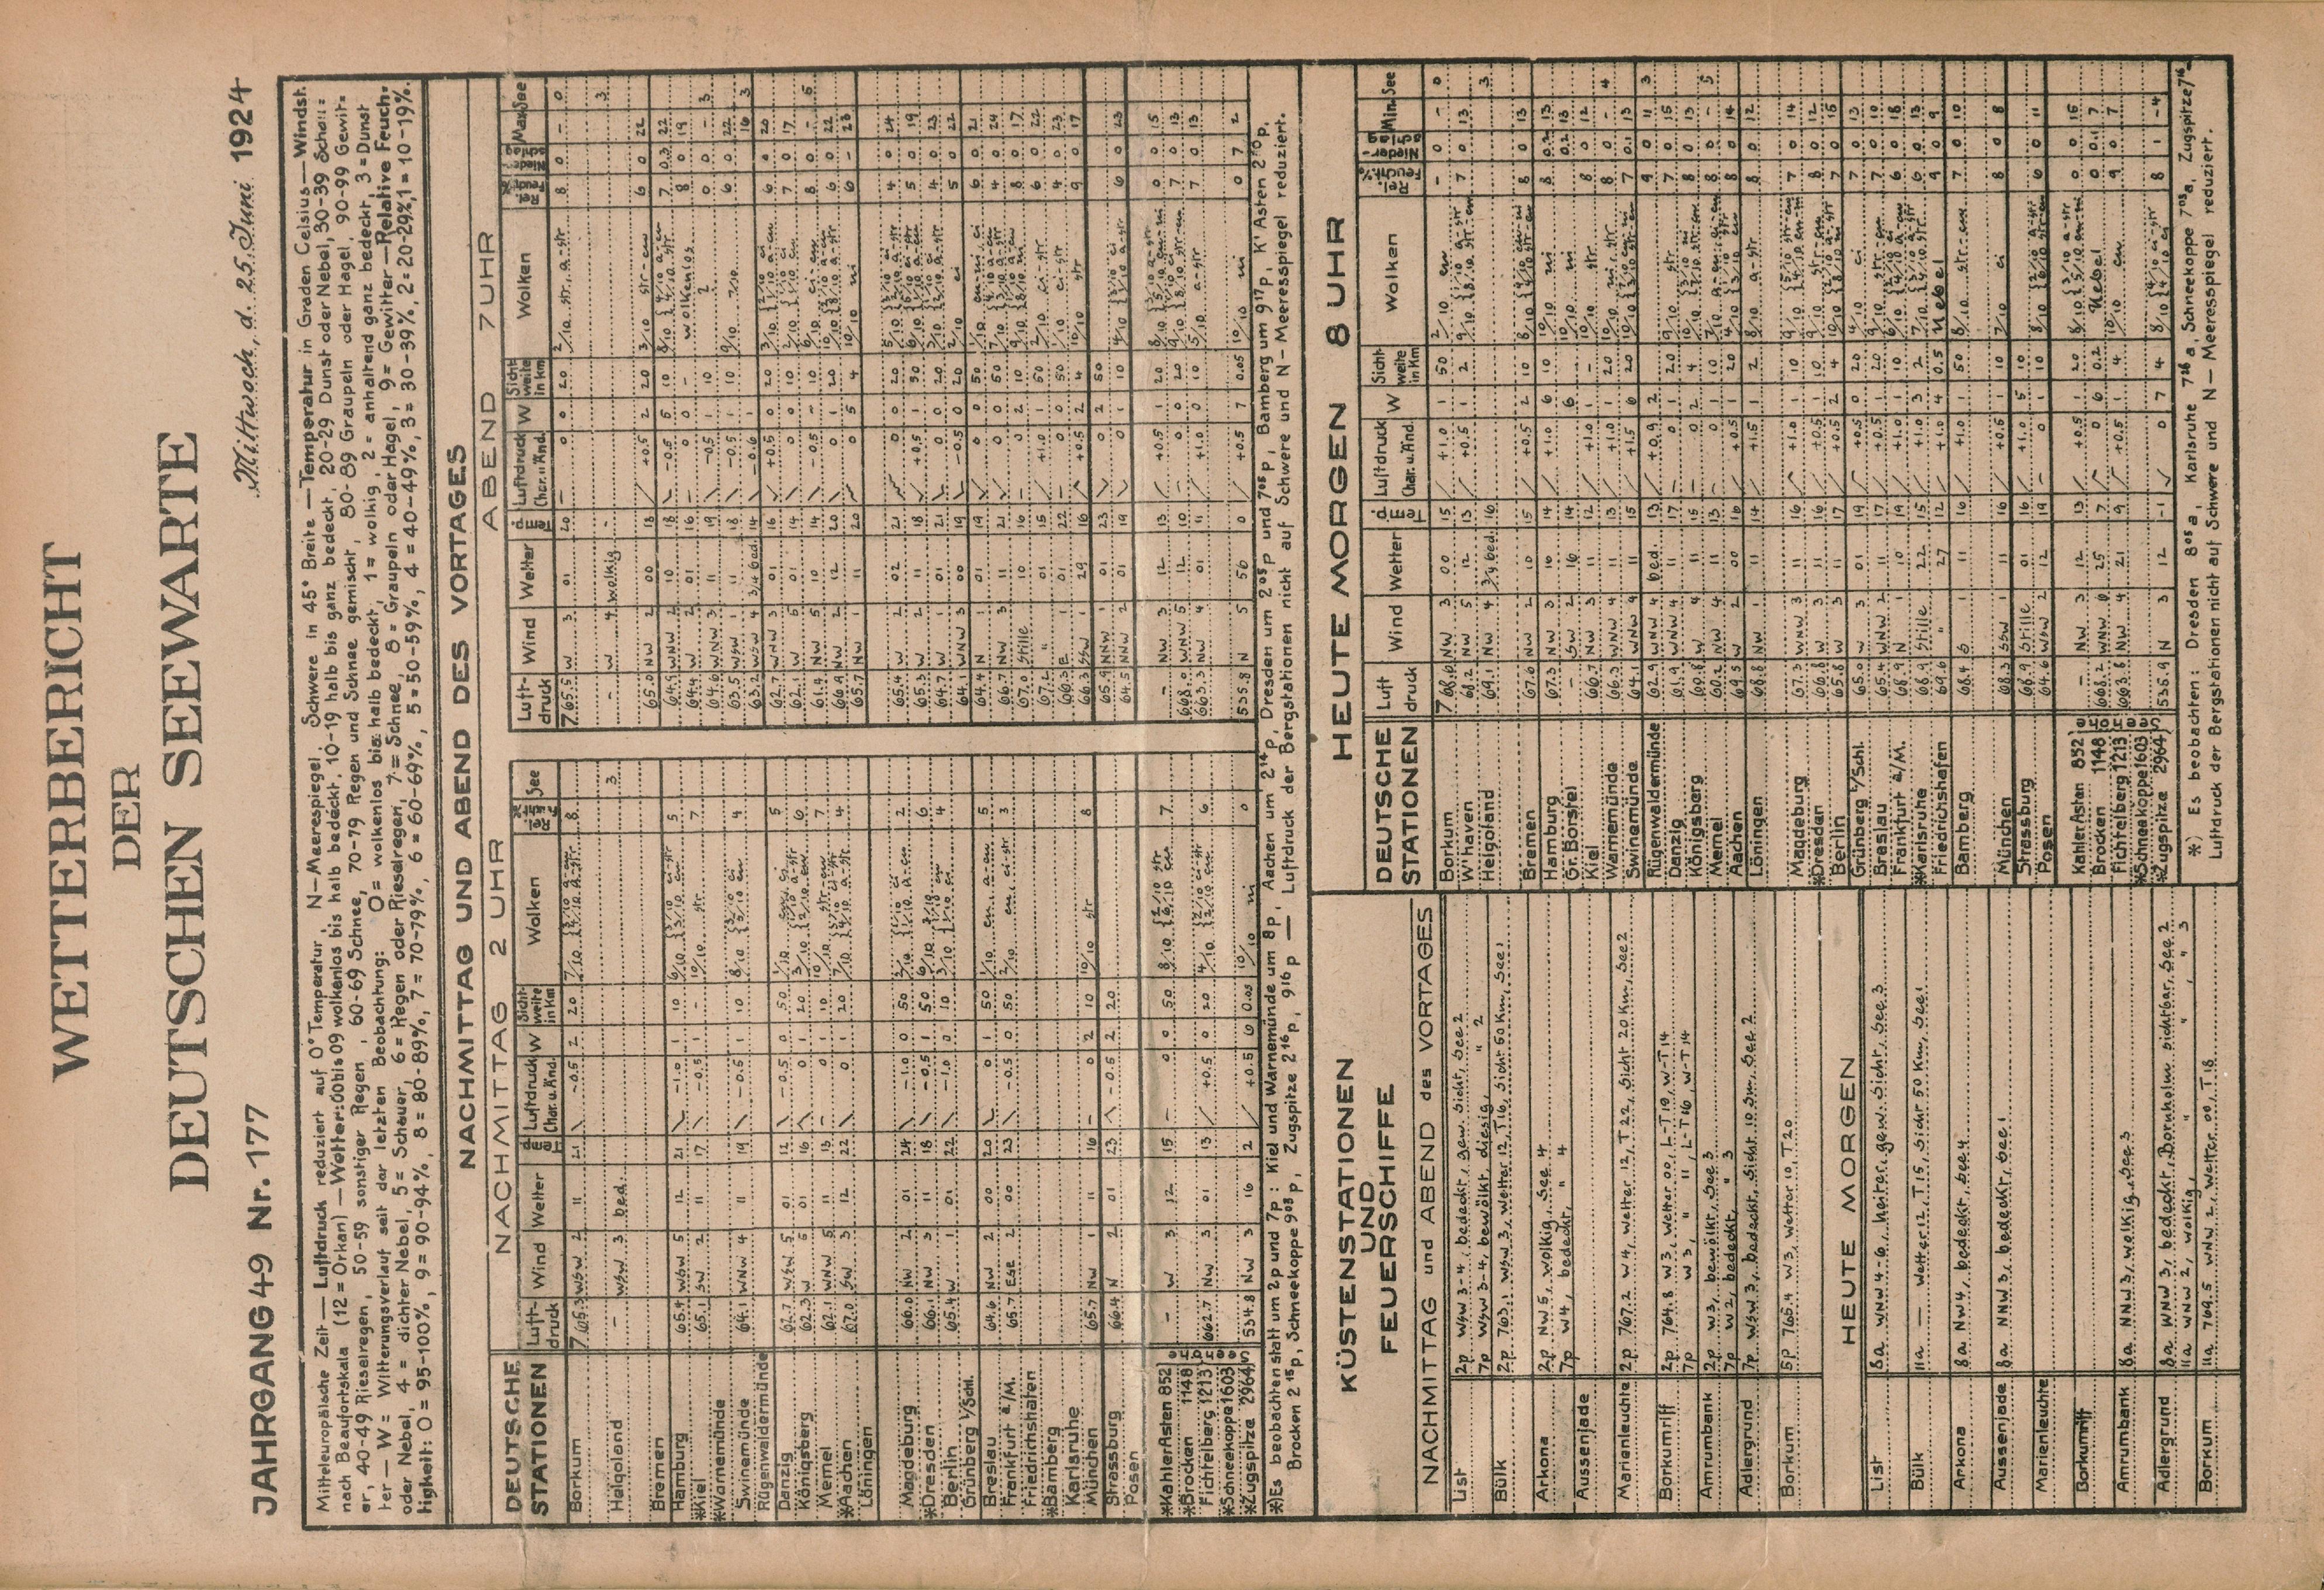 WETTERBERICHT
DER
DEUTSCHEN SEEWARTE
JAHRGANG 49 Nr. 177 Mittwoch, d. 25. Juni 1924
Mitteleuropäische Zeit — Luftdruck reduziert auf 0° Temperatur, N-Meeresspiegel, Schwere in 45° Breite — Temperatur in Graden Celsius — Windst.
nach Beaufortskala (12 = Orkan) — Wetter: 00 bis 09 wolkenlos bis halb bedeckt, 10-19 halb bis ganz bedeckt, 20-29 Dunst oder Nebel, 30-39 Schau=
er, 40-49 Rieselregen, 50-59 sonstiger Regen, 60-69 Schnee, 70-79 Regen und Schnee gemischt, 80-89 Graupeln oder Hagel, 90-99 Gewit=
ter — W = Witterungsverlauf seit der letzten Beobachtung: 0 = wolkenlos bis halb bedeckt, 1 = wolkig, 2 = anhaltend ganz bedeckt, 3 = Dunst
oder Nebel, 4 = dichter Nebel, 5 = Schauer, 6 = Regen oder Rieselregen, 7 = Schnee, 8 = Graupeln oder Hagel, 9 = Gewitter — Relative Feuch=
tigkeit: 0 = 95-100%, 9 = 90-94%, 8 = 80-89%, 7 = 70-79%, 6 = 60-69%, 5 = 50-59%, 4 = 40-49%, 3 = 30-39%, 2 = 20-29%, 1 = 10-19%.
NACHMITTAG UND ABEND DES VORTAGES
NACHMITTAG 2 UHR
DEUTSCHE STATIONEN Luft-druck Wind Wetter Luftdruck Char. u. Änd. W Sicht-weite in Km Wolken See
Borkum 765.3 WSW 2 11 21 -0.5 2 20 7/10 8
Helgoland - WSW 3 bed. 3
Bremen
Hamburg 65.4 WSW 5 12 21 -1.0 1 10 6/10 5
*Kiel 65.1 SW 2 11 17 -0.5 1 - 10/10 str 7
*Warnemünde
Swinemünde 64.1 WNW 4 11 19 -0.5 1 10 8/10 4
Rügenwaldermünde
Danzig 62.7 WSW 5 01 12 -0.5 0 50 1/10 5
Königsberg 62.3 W 5 01 16 0 1 20 3/10 6
Memel 62.1 WNW 5 11 13 0 1 10 10/10 str-cu 7
*Aachen 67.0 SW 3 12 22 0 1 20 7/10 4
Löningen
Magdeburg 66.0 NW 2 01 24 -1.0 0 50 2
*Dresden 66.1 NW 3 11 18 -0.5 1 50 6/10 6
Berlin 65.4 W 1 01 22 -1.0 0 10 3/10 4
Grünberg i/Schl.
Breslau 64.6 NW 2 00 20 0 1 50 1/10 cu, a-cu 5
Frankfurt a/M. 65.7 ESE 2 00 23 -0.5 0 50 2/10 cu, ci-str 3
Friedrichshafen
*Bamberg
Karlsruhe
München 65.7 NW 1 11 16 0 2 10 10/10 str 8
Strassburg 66.4 N 2 01 23 -0.5 2 20
Posen
*Kahler Asten 852 - W 3 12 15 0 0 50 8/10 7
*Brocken 1148
Fichtelberg 1213 662.7 NW 3 01 13 +0.5 0 20 4/10 6
*Schneekoppe 1603
*Zugspitze 2964 534.8 NW 3 16 2 +0.5 6 0.05 10/10 ni 0
ABEND 7 UHR
Luft-druck Wind Wetter Luftdruck Char. u. Änd. W Sicht-weite in Km Wolken Max. See
765.5 W 3 01 20 0 0 20 2/10 str, a-str 8 0 - 0
- W 4 wolkig 3
65.0 NW 2 00 18 +0.5 2 20 3/10 str-cu 6 0 22
64.5 WNW 2 10 18 -0.5 5 10 8/10 7 0.3 22
64.4 W 2 01 16 0 0 - wolkenlos 8 0 19
64.6 WNW 3 11 19 -0.5 1 10 0 0 - 3
63.5 WSW 1 11 18 -0.5 1 10 9/10 6 0 22
63.2 WSW 4 3/4 bed. 14 -0.6 1 16 3
62.7 WNW 3 01 16 +0.5 0 20 3/10 6 0 20
62.1 W 5 01 14 0 0 10 2/10 7 0 17
61.4 NW 5 10 14 -0.5 - 10 6/10 ci-cu 8 0 - 5
66.9 NW 2 12 20 0 1 20 10/10 6 0 22
65.7 NW 1 11 20 0 5 4 10/10 ni 6 - 23
65.4 W 2 02 21 0 0 20 5/10 4 0 24
65.3 W 2 11 18 +0.5 1 30 6/10 5 0 19
64.7 W 1 01 21 0 0 20 3/10 4 0 23
64.1 WNW 3 00 19 -0.5 0 20 2/10 ci 5 0 22
64.4 N 1 01 19 0 0 50 1/10 cu-ni, ci 6 0 21
66.7 NW 3 11 21 0 0 50 7/10 4 0 24
67.0 Stille 10 16 0 2 10 9/10 8 0 17
67.2 " 01 15 +1.0 1 50 2/10 ci-str 6 0 22
66.3 E 1 01 22 0 0 50 1/10 ci-str 4 0 23
66.3 SSW 1 29 16 +0.5 2 4 10/10 str 9 0 17
65.9 NNW 1 01 23 0 2 50
64.5 NNW 2 01 19 0 1 10 4/10 6 0 23
- NW 3 12 13 +0.5 1 20 8/10 0 0 15
668.0 WNW 5 12 10 0 0 20 9/10 7 0 13
663.3 NW 4 01 11 0 0 10 5/10 a-str 7 0 13
535.8 N 5 56 0 +0.5 7 0.05 10/10 ni 0 7 2
*) Es beobachten statt um 2p und 7p: Kiel und Warnemünde um 8p, Aachen um 2¹⁴p, Dresden um 2⁰⁵p und 7⁰⁵p, Bamberg um 9¹⁷p, K' Asten 2¹⁰p,
Brocken 2¹⁵p, Schneekoppe 9⁰³p, Zugspitze 2¹⁶p, 9¹⁶p — Luftdruck der Bergstationen nicht auf Schwere und N-Meeresspiegel reduziert.
KÜSTENSTATIONEN
UND
FEUERSCHIFFE
NACHMITTAG und ABEND des VORTAGES
List 2p WSW 3-4, bedeckt, gew. Sicht, See 2
7p WSW 3-4, bewölkt, diesig, " 2
Bülk 2p 763.1 WSW 3, Wetter 12, T 16, Sicht 50 Km, See 1
Arkona 2p NW 5, wolkig, See 4
7p W 4, bedeckt, " 4
Aussenjade
Marienleuchte 2p 767.2 W 4, Wetter 12, T 22, Sicht 20 Km, See 2
Borkumriff 2p 764.8 W 3, Wetter 00, L-T 19, W-T 14
7p W 3, " 11, L-T 16, W-T 14
Amrumbank 2p W 3, bewölkt, See 3
7p W 2, bedeckt, " 3
Adlergrund 7p WSW 3, bedeckt, Sicht 10 Sm, See 2
Borkum 5p 765.4 W 3, Wetter 10, T 20
HEUTE MORGEN
List 8a WNW 4-6, heiter, gew. Sicht, See 3
Bülk 11a — Wetter 12, T 15, Sicht 50 Km, See 1
Arkona 8a NW 4, bedeckt, See 4
Aussenjade 8a NNW 3, bedeckt, See 1
Marienleuchte
Borkumriff
Amrumbank 8a NNW 3, wolkig, See 3
Adlergrund 8a WNW 3, bedeckt, Bornholm sichtbar, See 2
11a WNW 2, wolkig, " " , " 3
Borkum 11a 769.5 WNW 2, Wetter 00, T 18
HEUTE MORGEN 8 UHR
DEUTSCHE STATIONEN Luft druck Wind Wetter Luftdruck Char. u. Änd. W Sicht-weite in Km Wolken Min. See
Borkum 768.6 NW 3 00 15 +1.0 1 50 2/10 cu - 0 - 0
W'haven 68.2 NW 5 12 13 +0.5 1 2 9/10 7 0 13
Helgoland 69.1 NW 4 3/4 bed. 16 3
Bremen 67.6 NW 2 10 15 +0.5 2 10 8/10 8 0 13
Hamburg 67.3 NW 3 10 14 +1.0 6 10 10/10 ni 8 0.2 13
Gr. Borstel - SW 2 16 14 6 10/10 ni 0.2 13
Kiel 66.7 NW 3 11 12 +1.0 1 - 10/10 str 8 0 12
Warnemünde 66.3 WNW 4 11 13 +1.0 1 20 10/10 ni, str 8 0 - 4
Swinemünde 64.1 WNW 4 11 15 +1.5 6 20 10/10 7 0.1 13
Rügenwaldermünde 62.9 WNW 4 bed. 13 +0.9 2 9 0 11 3
Danzig 61.9 NW 4 11 17 0 1 20 9/10 str 7 0 15
Königsberg 60.8 W 4 11 15 0 2 4 10/10 8 0 13
Memel 60.2 NW 4 11 13 0 1 10 7/10 8 0 - 5
Aachen 69.5 W 2 00 16 +0.5 1 20 4/10 8 0 14
Löningen 68.8 NW 1 11 14 +1.5 1 2 8/10 a-str 8 0 12
Magdeburg 67.3 WNW 3 11 16 +1.0 1 10 9/10 7 0 14
*Dresden 66.8 W 3 11 16 +0.5 1 10 9/10 str-cu 8 0 12
Berlin 65.8 W 3 11 17 +0.5 2 4 10/10 7 0 15
Grünberg i/Schl. 65.0 W 3 01 19 +0.5 0 20 4/10 ci 7 0 13
Breslau 65.4 WNW 2 11 17 +0.5 1 20 9/10 str-cu 7 0 10
Frankfurt a/M. 68.9 N 1 10 19 +1.0 1 10 6/10 6 0 18
*Karlsruhe 68.9 Stille 22 15 +1.0 3 2 7/10 6 0 13
Friedrichshafen 69.6 " 27 12 +1.0 4 0.5 Nebel 9 0 9
Bamberg 68.4 S 1 11 16 +1.0 1 50 8/10 str-cu 7 0 10
München 68.3 SSW 1 11 16 +0.5 1 10 7/10 ci 8 0 8
Strassburg 68.9 Stille 01 16 +1.0 5 10
Posen 64.6 WSW 2 12 19 0 1 10 8/10 6 0 11
Kahler Asten 852 - NW 3 12 13 +0.5 1 20 8/10 0 0 15
Brocken 1148 668.2 WNW 6 25 7 0 6 0.2 Nebel 0 0.1 7
Fichtelberg 1213 663.8 NW 4 21 9 +0.5 1 4 10/10 cu 9 0 7
*Schneekoppe 1603
*Zugspitze 2964 536.9 N 3 12 -1 0 7 4 8/10 8 1 -4
*) Es beobachten: Dresden 8⁰⁵a, Karlsruhe 7²⁶a, Schneekoppe 7⁰³a, Zugspitze 7¹⁶
Luftdruck der Bergstationen nicht auf Schwere und N-Meeresspiegel reduziert.